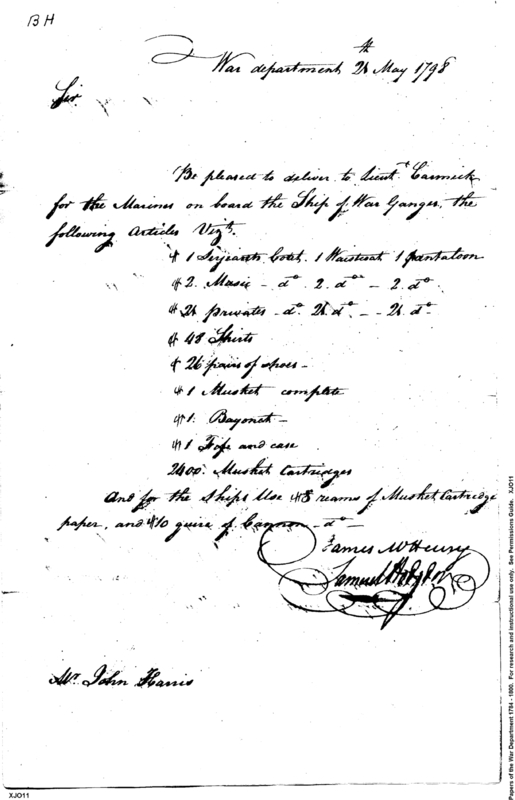 BH
War department 24th May 1798
Sir
Be pleased to deliver to Lieut Carmick
for the Marines on board the Ship of War Ganges, the
following Articles Vizt.
# 1 Serjeants Coat, 1 Waistcoat 1 pantaloon
# 2. Music - do 2. do - 2. do
# 24 privates - do. 24. do. - - 24. do
# 48 Shirts
# 26 pairs of shoes -
# 1 Musket complete
# 1. Bayonet -
# 1 Fife and case
2400. Musket Cartridges
And for the Ships Use #8 reams of Musket Cartridge
paper, and #10 quire of Cannon - do -
James McHenry
Samuel Hodgdon
Mr. John Harris
XJO11
Papers of the War Department 1784 - 1800. For research and instructional use only. See Permissions Guide. XJO11